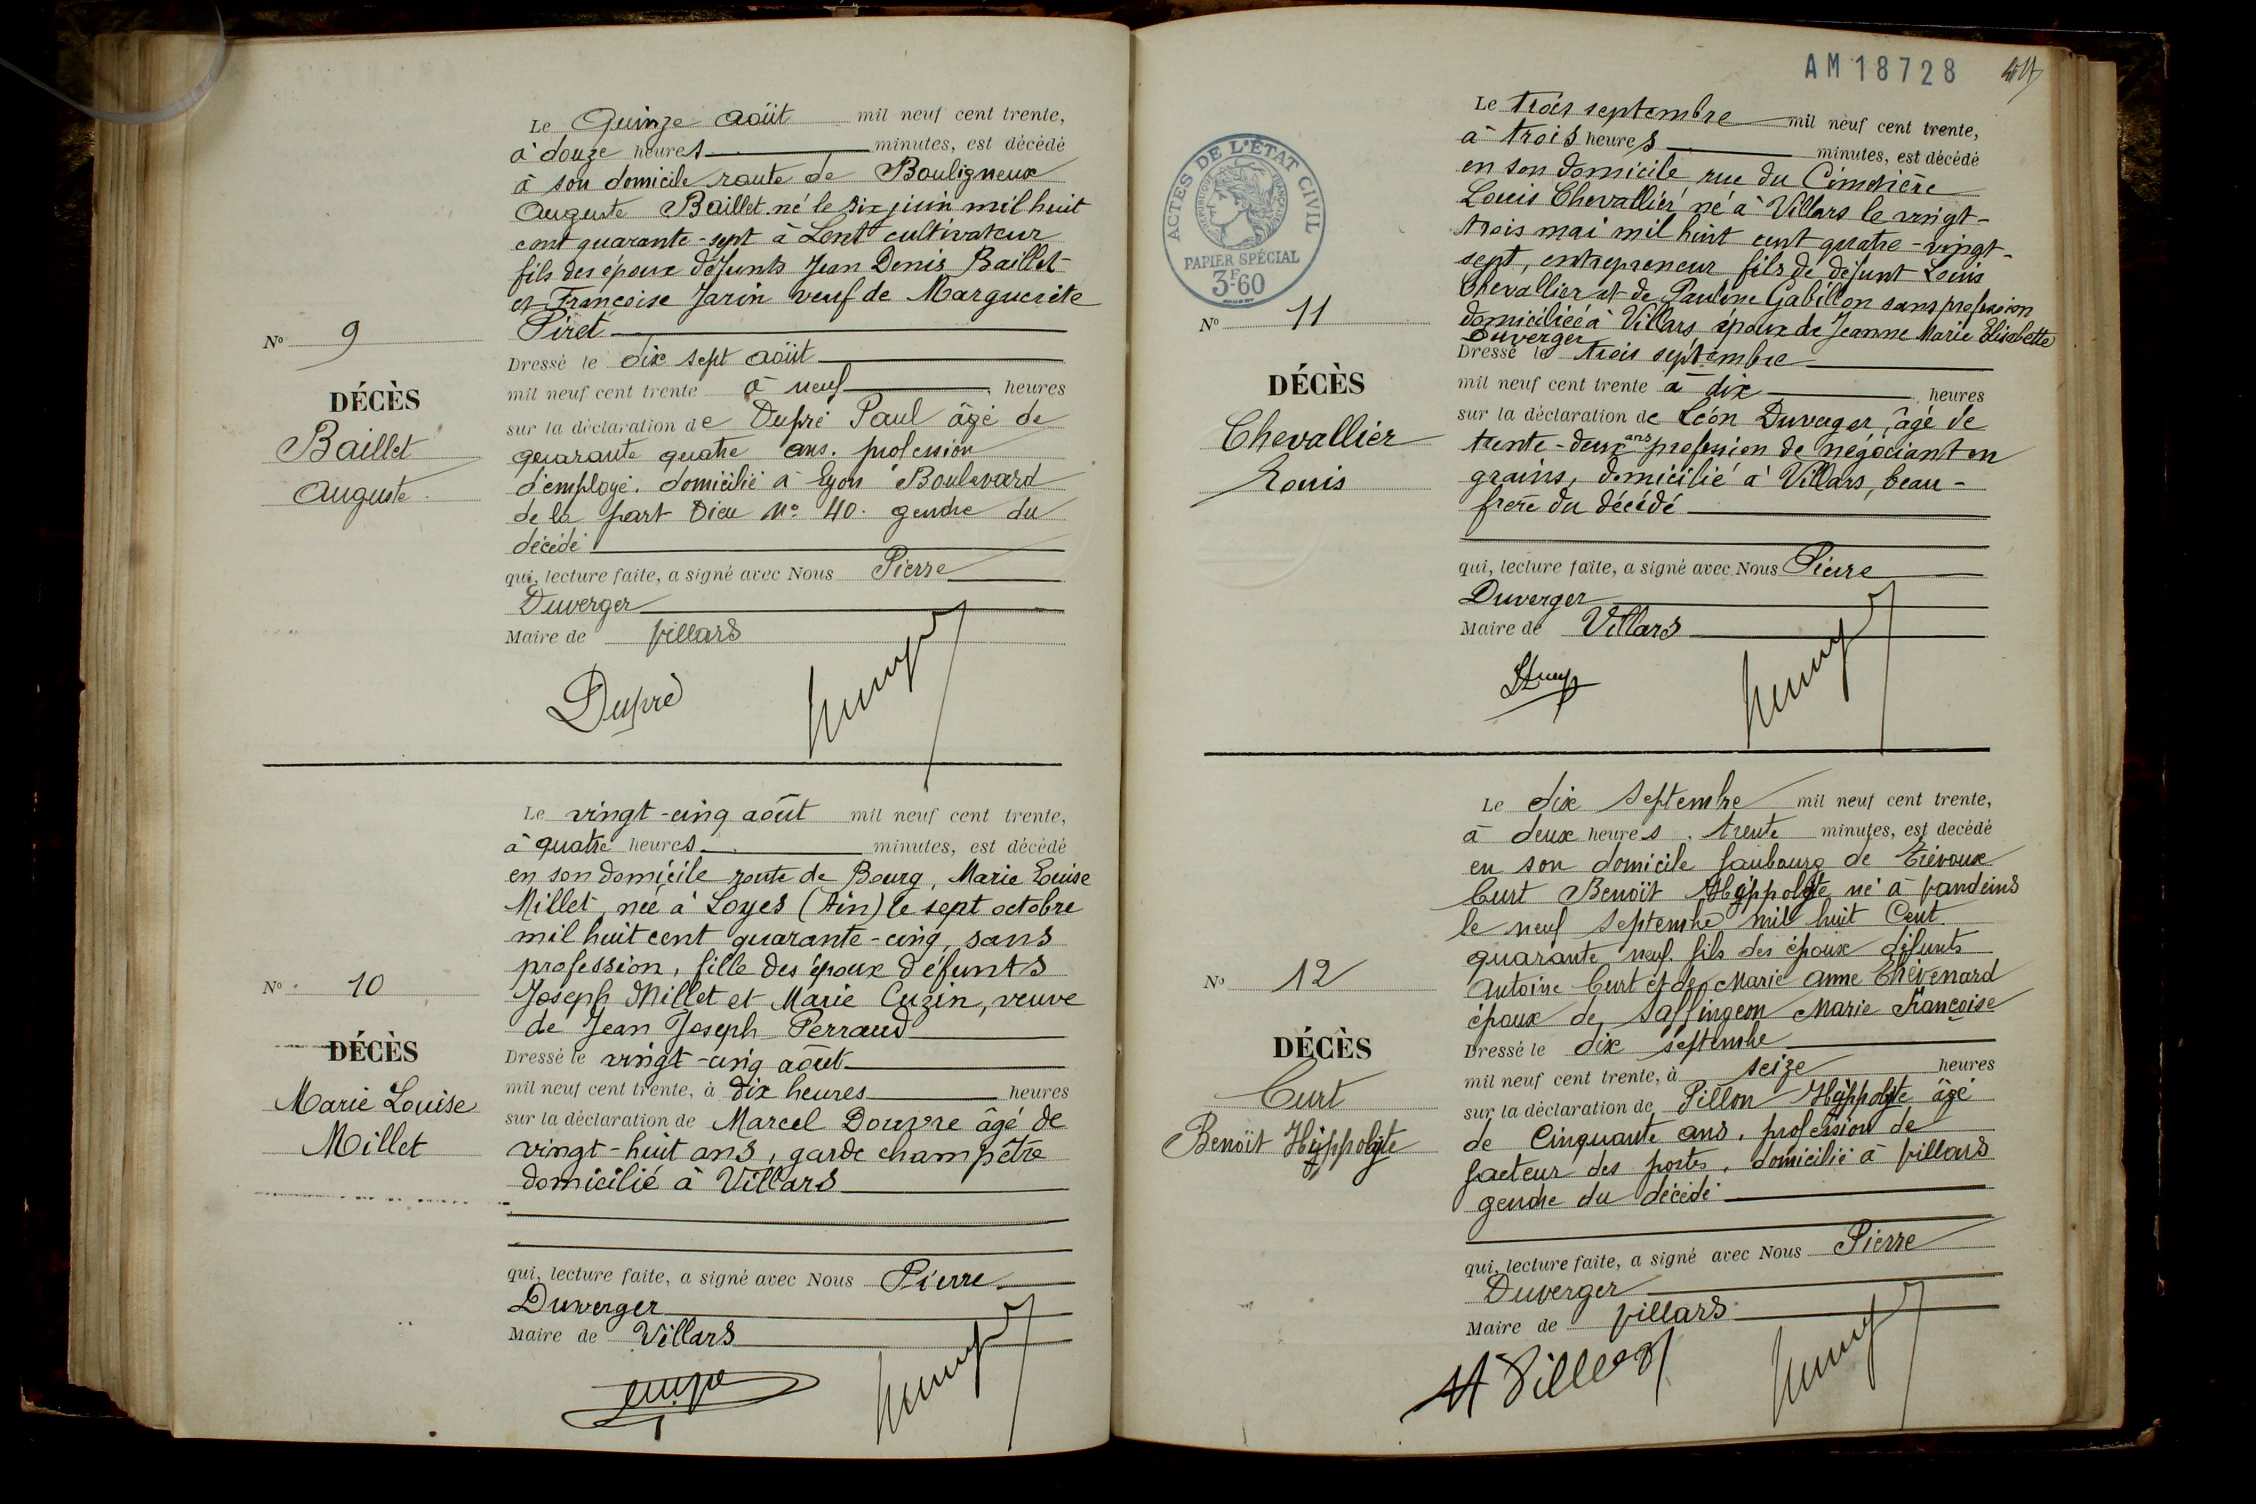 Le Quinze août mil neuf cent trente,
à douze heures minutes, est décédé
à son domicile route de Bouligneux
Auguste Baillet né le six juin mil huit
cent quarante-sept à Lent cultivateur
fils des époux défunts Jean Denis Baillet
et Françoise Jarin veuf de Marguerite
Piret
Nº 9
DÉCÈS
Baillet
Auguste
Dressé le dix sept août
mil neuf cent trente à neuf heures
sur la déclaration de Dupré Paul âgé de
quarante quatre ans. profession
d'employé. domicilié à Lyon Boulevard
de la part Dieu Nº 40. gendre du
décédé
qui, lecture faite, a signé avec Nous Pierre
Duverger
Maire de Villars
Dupré
Le vingt-cinq août mil neuf cent trente,
à quatre heures minutes, est décédé
en son domicile route de Bourg, Marie Louise
Millet née à Loyes (Ain) le sept octobre
mil huit cent quarante-cinq, sans
profession, fille des époux défunts
Joseph Millet et Marie Cuzin, veuve
de Jean Joseph Perraud
Nº 10
DÉCÈS
Marie Louise
Millet
Dressé le vingt-cinq août
mil neuf cent trente, à dix heures heures
sur la déclaration de Marcel Douvre âgé de
vingt-huit ans, garde champêtre
domicilié à Villars
qui, lecture faite, a signé avec Nous Pierre
Duverger
Maire de Villars
AM18728
ACTES DE L'ÉTAT CIVIL
RÉPUBLIQUE FRANÇAISE
PAPIER SPÉCIAL
3F60
Le trois septembre mil neuf cent trente,
à trois heures minutes, est décédé
en son domicile rue du Cimetière
Louis Chevallier né à Villars le vingt-
trois mai mil huit cent quatre-vingt-
sept, entrepreneur fils de défunt Louis
Chevallier et de Pauline Gabillon sans profession
domiciliée à Villars époux de Jeanne Marie Elisabette
Duverger
Nº 11
DÉCÈS
Chevallier
Louis
Dressé le trois septembre
mil neuf cent trente à dix heures
sur la déclaration de Léon Duverger, âgé de
trente-deux ans profession de négociant en
grains, domicilié à Villars, beau-
frère du décédé
qui, lecture faite, a signé avec Nous Pierre
Duverger
Maire de Villars
Le dix septembre mil neuf cent trente,
à deux heures. trente minutes, est decédé
en son domicile faubourg de Trévoux
Curt Benoït Hyppolyte né à Vandeins
le neuf septembre mil huit Cent
quarante neuf. fils des époux défunts
Antoine Curt et de Marie Anne Thévenard
époux de Saffingeon Marie Françoise
Nº 12
DÉCÈS
Curt
Benoït Hyppolyte
Dressé le dix septembre
mil neuf cent trente, à seize heures
sur la déclaration de Pillon Hyppolyte âgé
de Cinquante ans. profession de
facteur des postes. domicilié à Villars
gendre du décédé
qui, lecture faite, a signé avec Nous Pierre
Duverger
Maire de Villars